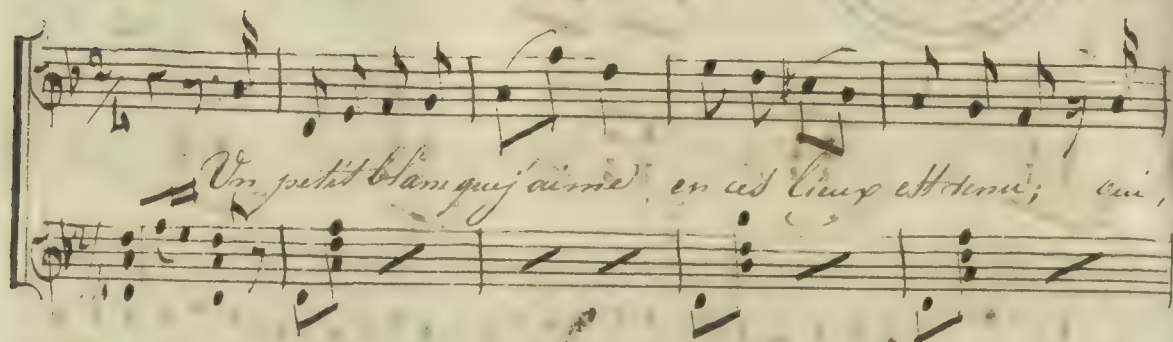 Un petit blanc que j'aime en ces lieux est venu; oui,